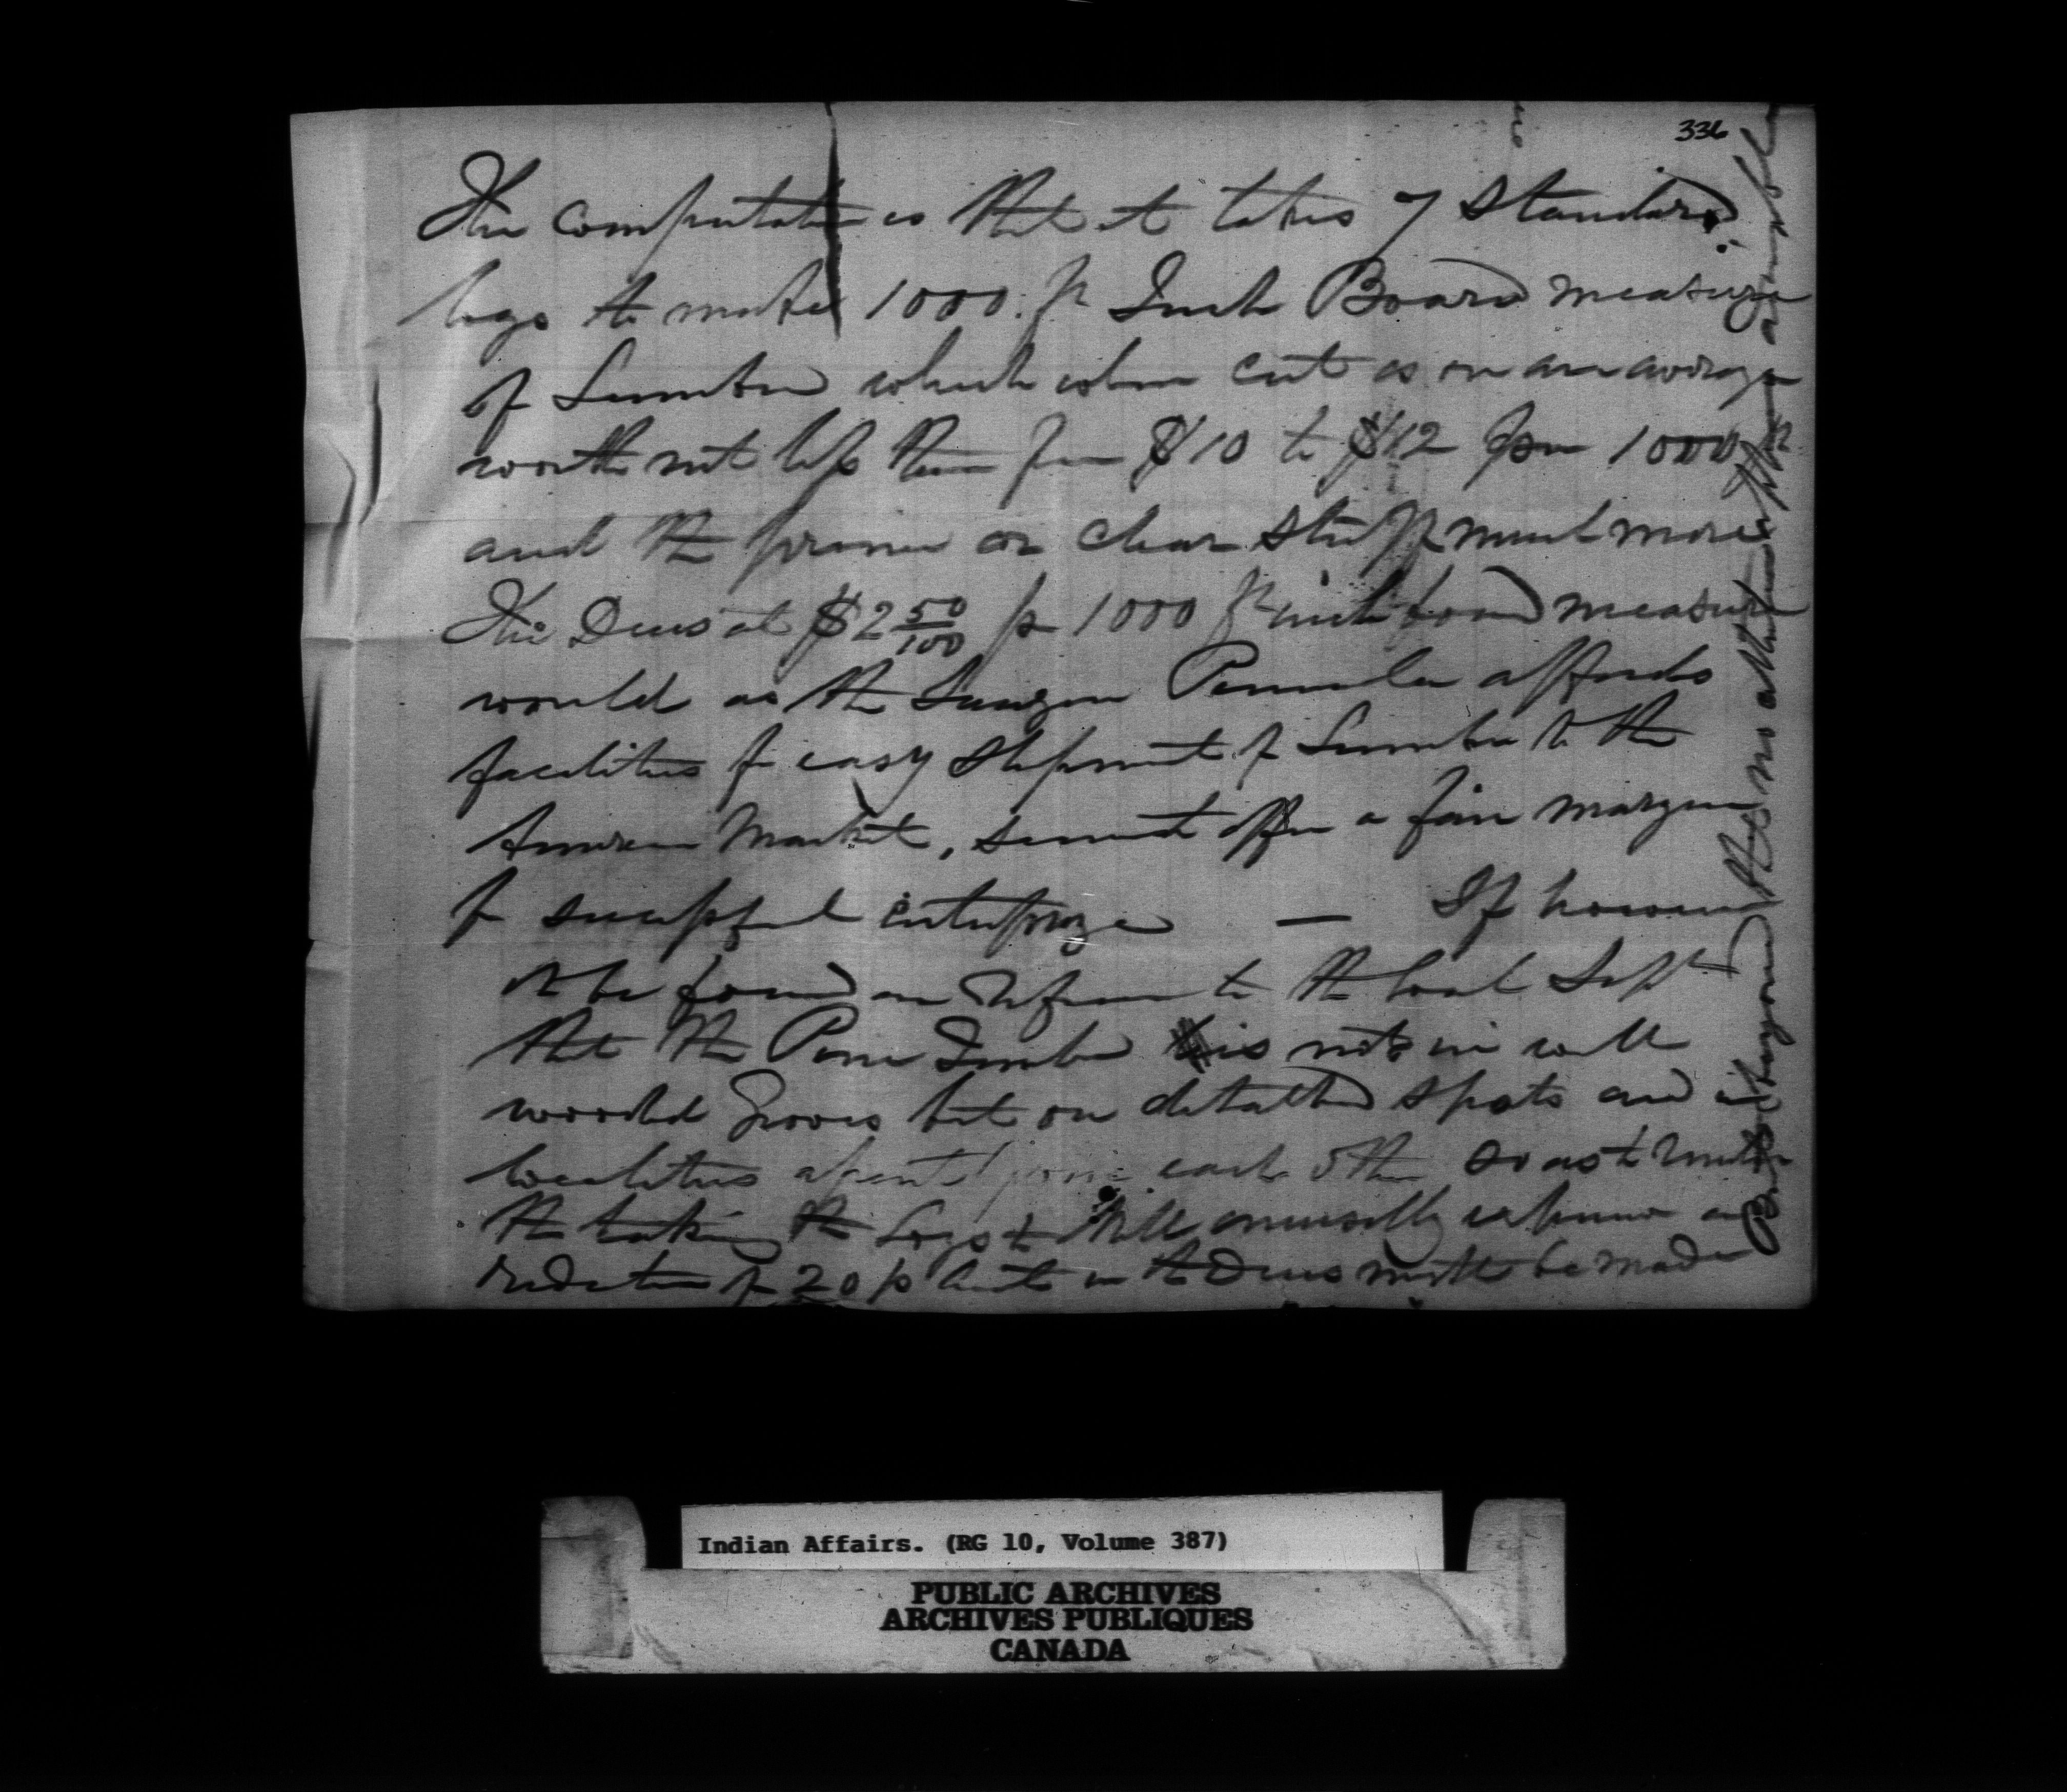 336
The computation is that it takes 7 Standard
logs to make 1000 ft Inch Board measure
of Lumber which when cut is on an average
worth not less than from $10 to $12 per 1000
and the prime or clear stuff much more
The Dues at $2 50/100 p 1000 ft inch board measure
would as the Saugeen Peninsula affords
facilities for easy shipment of Lumber to the
American Market, seem to offer a fair margin
for successful enterprize — If however
it be found on reference to the local Supt
that the Pine Timber is not in well
wooded Groves but on detached spots and in
localities apart from each other so as to render
the taking the Logs to Mill unusually expensive a
reduction of 20 p cent in the Dues might be made
But beyond this no abatement
Indian Affairs. (RG 10, Volume 387)
PUBLIC ARCHIVES
ARCHIVES PUBLIQUES
CANADA